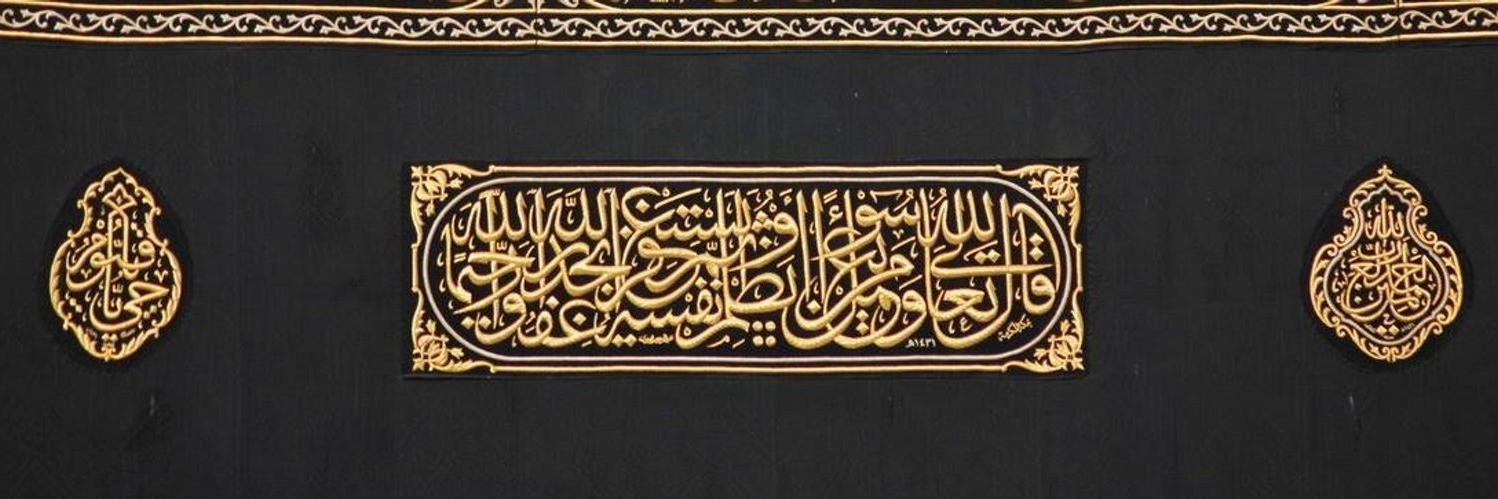 الحمد لله رب العالمين
قال الله تعالى ومن يعمل سوءا أو يظلم نفسه ثم يستغفر الله يجد الله غفورا رحيما
١٤٣١هـ
يا حي يا قيوم